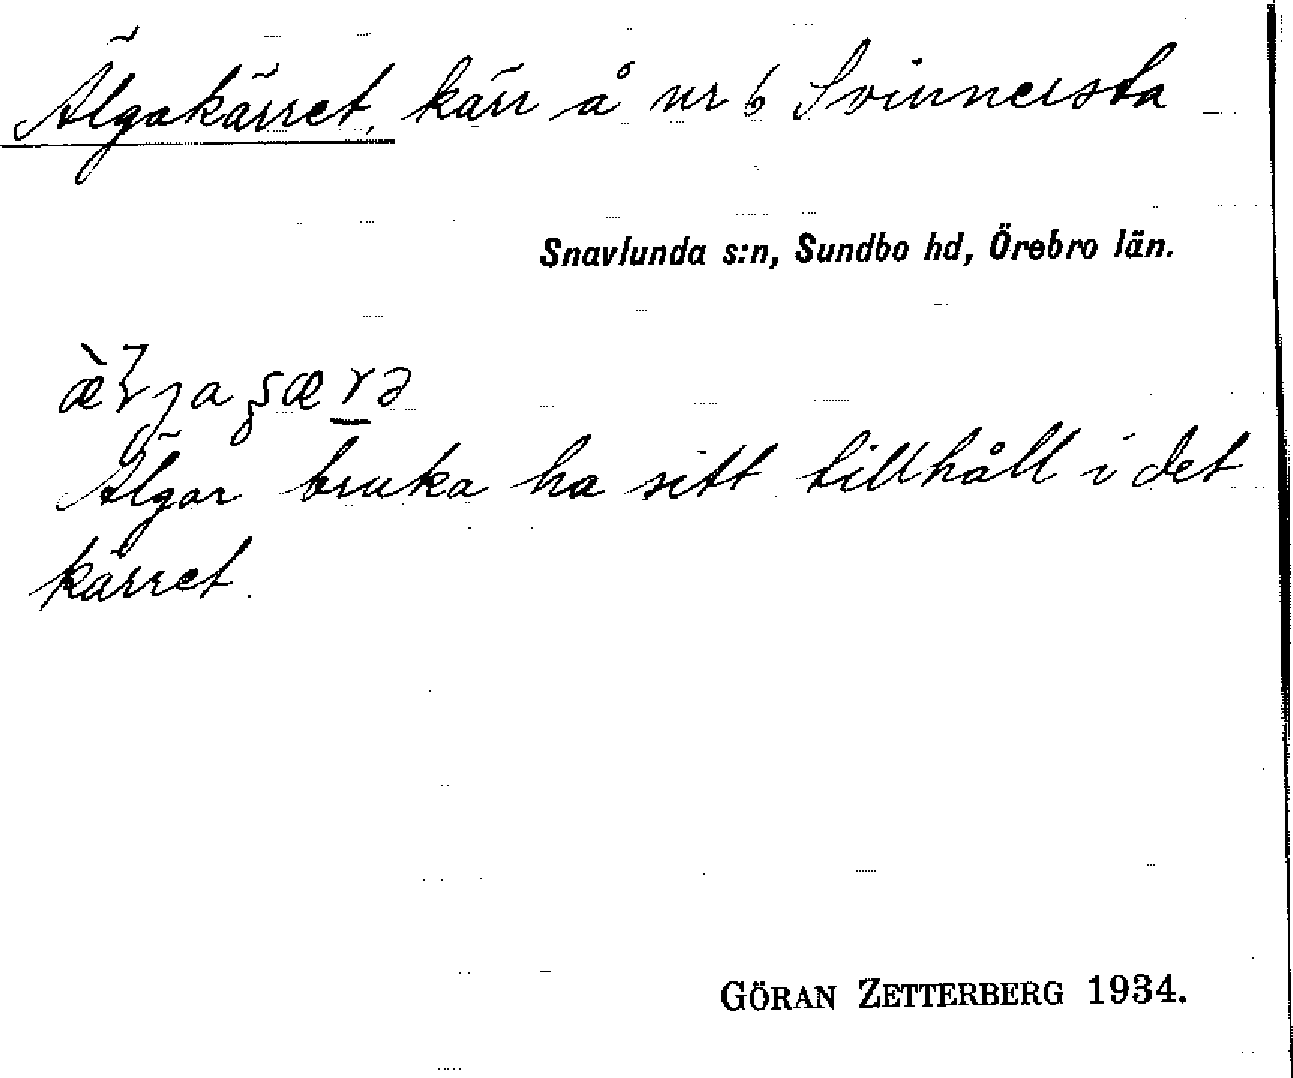 Älgakärret, kärr å nr 6 Svinnersta
Snavlunda s:n, Sundbo hd, Örebro län.
Älgar bruka ha sitt tillhåll i det
kärret.
GÖRAN ZETTERBERG 1934.